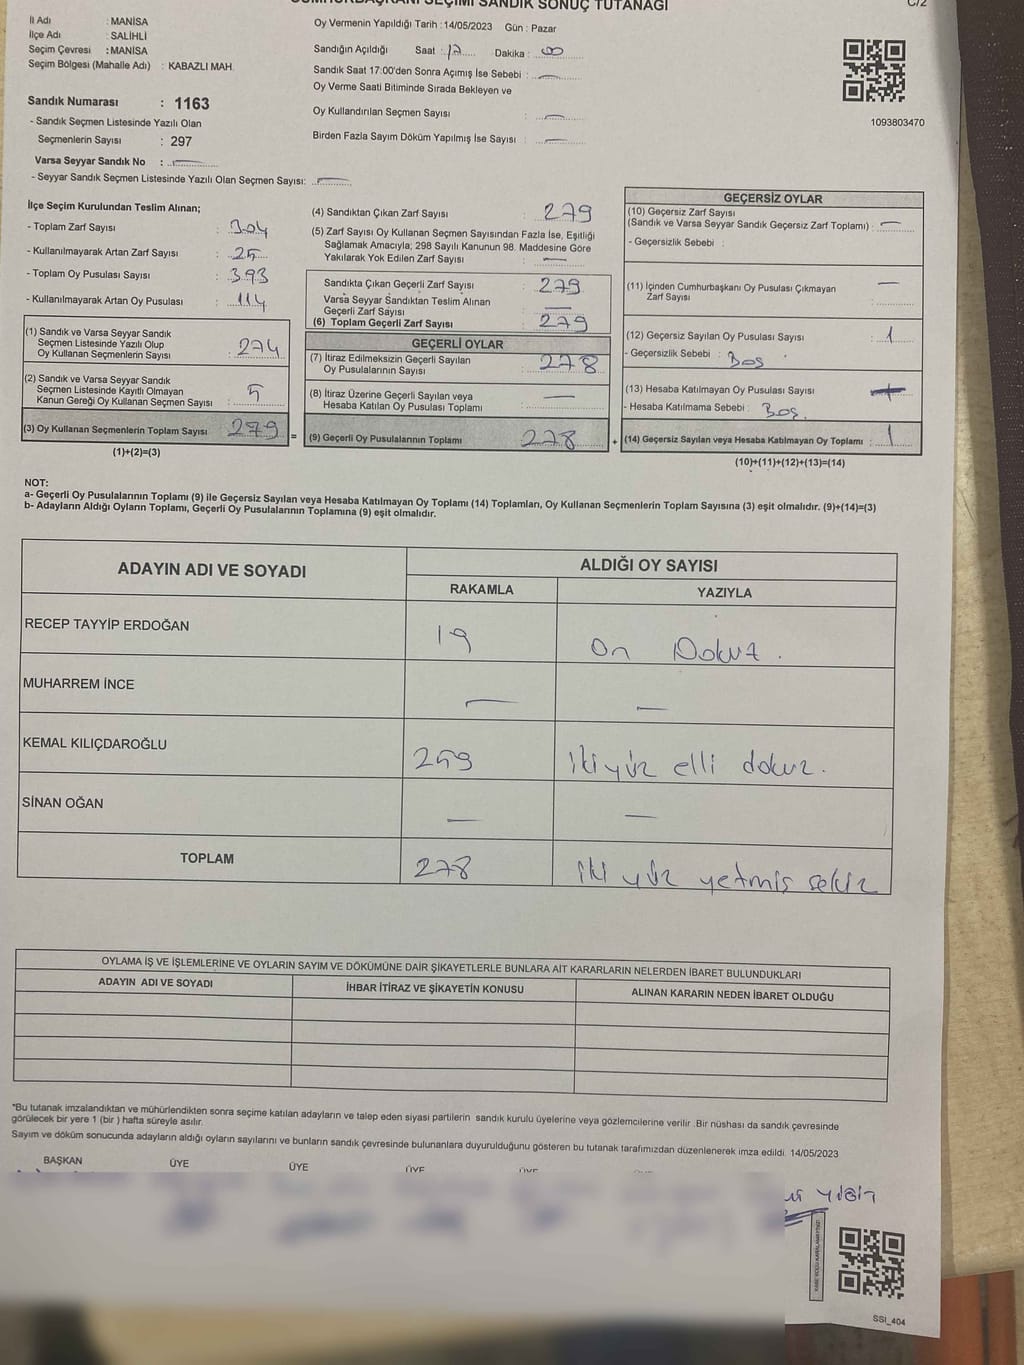 CUMHURBAŞKANI SEÇİMİ SANDIK SONUÇ TUTANAĞI
C/2
İl Adı : MANİSA
İlçe Adı : SALİHLİ
Seçim Çevresi : MANİSA
Seçim Bölgesi (Mahalle Adı) : KABAZLI MAH.
Sandık Numarası : 1163
- Sandık Seçmen Listesinde Yazılı Olan
Seçmenlerin Sayısı : 297
Varsa Seyyar Sandık No : —
- Seyyar Sandık Seçmen Listesinde Yazılı Olan Seçmen Sayısı: —
Oy Vermenin Yapıldığı Tarih : 14/05/2023 Gün : Pazar
Sandığın Açıldığı Saat : 17 Dakika : 00
Sandık Saat 17:00'den Sonra Açımış İse Sebebi : —
Oy Verme Saati Bitiminde Sırada Bekleyen ve
Oy Kullandırılan Seçmen Sayısı : —
Birden Fazla Sayım Döküm Yapılmış İse Sayısı : —
1093803470
İlçe Seçim Kurulundan Teslim Alınan;
- Toplam Zarf Sayısı : 304
- Kullanılmayarak Artan Zarf Sayısı : 25
- Toplam Oy Pusulası Sayısı : 393
- Kullanılmayarak Artan Oy Pusulası : 114
(1) Sandık ve Varsa Seyyar Sandık
Seçmen Listesinde Yazılı Olup
Oy Kullanan Seçmenlerin Sayısı : 274
(2) Sandık ve Varsa Seyyar Sandık
Seçmen Listesinde Kayıtlı Olmayan
Kanun Gereği Oy Kullanan Seçmen Sayısı : 5
(3) Oy Kullanan Seçmenlerin Toplam Sayısı : 279
(1)+(2)=(3)
(4) Sandıktan Çıkan Zarf Sayısı : 279
(5) Zarf Sayısı Oy Kullanan Seçmen Sayısından Fazla İse, Eşitliği
Sağlamak Amacıyla; 298 Sayılı Kanunun 98. Maddesine Göre
Yakılarak Yok Edilen Zarf Sayısı : —
Sandıkta Çıkan Geçerli Zarf Sayısı : 279
Varsa Seyyar Sandıktan Teslim Alınan
Geçerli Zarf Sayısı : —
(6) Toplam Geçerli Zarf Sayısı : 279
GEÇERLİ OYLAR
(7) İtiraz Edilmeksizin Geçerli Sayılan
Oy Pusulalarının Sayısı : 278
(8) İtiraz Üzerine Geçerli Sayılan veya
Hesaba Katılan Oy Pusulası Toplamı : —
= (9) Geçerli Oy Pusulalarının Toplamı 278 +
GEÇERSİZ OYLAR
(10) Geçersiz Zarf Sayısı
(Sandık ve Varsa Seyyar Sandık Geçersiz Zarf Toplamı) : —
- Geçersizlik Sebebi :
(11) İçinden Cumhurbaşkanı Oy Pusulası Çıkmayan
Zarf Sayısı : —
(12) Geçersiz Sayılan Oy Pusulası Sayısı : 1
- Geçersizlik Sebebi : Boş
(13) Hesaba Katılmayan Oy Pusulası Sayısı :
- Hesaba Katılmama Sebebi : Boş.
(14) Geçersiz Sayılan veya Hesaba Katılmayan Oy Toplamı : 1
(10)+(11)+(12)+(13)=(14)
NOT:
a- Geçerli Oy Pusulalarının Toplamı (9) ile Geçersiz Sayılan veya Hesaba Katılmayan Oy Toplamı (14) Toplamları, Oy Kullanan Seçmenlerin Toplam Sayısına (3) eşit olmalıdır. (9)+(14)=(3)
b- Adayların Aldığı Oyların Toplamı, Geçerli Oy Pusulalarının Toplamına (9) eşit olmalıdır.
ADAYIN ADI VE SOYADI
ALDIĞI OY SAYISI
RAKAMLA YAZIYLA
RECEP TAYYİP ERDOĞAN 19 On Dokuz .
MUHARREM İNCE — —
KEMAL KILIÇDAROĞLU 259 İkiyüz elli dokuz .
SİNAN OĞAN — —
TOPLAM 278 iki yüz yetmiş sekiz
OYLAMA İŞ VE İŞLEMLERİNE VE OYLARIN SAYIM VE DÖKÜMÜNE DAİR ŞİKAYETLERLE BUNLARA AİT KARARLARIN NELERDEN İBARET BULUNDUKLARI
ADAYIN ADI VE SOYADI İHBAR İTİRAZ VE ŞİKAYETİN KONUSU ALINAN KARARIN NEDEN İBARET OLDUĞU
*Bu tutanak imzalandıktan ve mühürlendikten sonra seçime katılan adayların ve talep eden siyasi partilerin sandık kurulu üyelerine veya gözlemcilerine verilir .Bir nüshası da sandık çevresinde
görülecek bir yere 1 (bir ) hafta süreyle asılır.
Sayım ve döküm sonucunda adayların aldığı oyların sayılarını ve bunların sandık çevresinde bulunanlara duyurulduğunu gösteren bu tutanak tarafımızdan düzenlenerek imza edildi. 14/05/2023
BAŞKAN ÜYE ÜYE ÜYE ÜYE
SSI_404